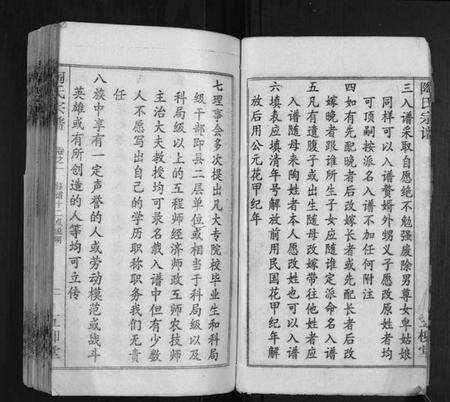 陶氏宗谱
三入谱采取自愿绝不勉强废除男尊女卑姑娘
同样可以入谱赘婿外甥义子愿改原姓者均
可顶嗣按派名入谱不加任何附注
四如有先配晚者后改嫁长者或先配长者后改
嫁晚者跟谁所生子女应随谁定派命名入谱
五凡有遗腹子或出生随母改嫁带往他姓者应
入谱随母来陶姓者本人愿改姓也可以入谱
六填表应填清年号解放前用民国花甲纪年解
放后用公元花甲纪年
七理事会多次提出凡大专院校毕业生和科局
级干部即县二层单位或相当于科局级以及
科局级以上的工程师经济师政工师农技师
主治大夫教授均可录名载入谱中但有少数
人不愿写出自己的学历职称职务我们无责
任
八族中享有一定声誉的人或劳动模范或战斗
英雄或有所创造的人等均可立传
陶氏宗谱
卷之一